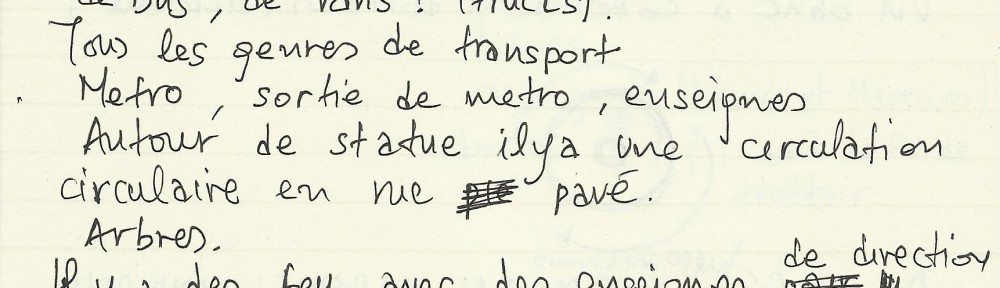 de bus, de vans ! (trucs).
Tous les genres de transport
Metro, sortie de metro, enseignes
Autour de statue ilya une cerculation
circulaire en rue pavé.
Arbres.
de direction
Il y a des feu avec des enseignes